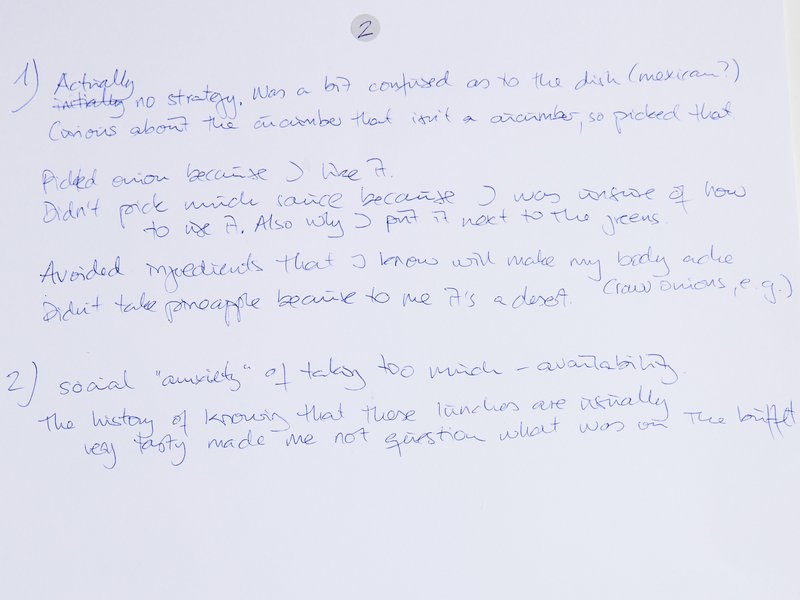 2
1) Actually
initially no strategy. Was a bit confused as to the dish (mexican?)
Curious about the cucumber that isn't a cucumber, so picked that
Picked onion because I like it.
Didn't pick much sauce because I was unsure of how
to use it. Also why I put it next to the greens.
Avoided ingredients that I know will make my body ache
(raw onions, e.g.)
Didn't take pineapple because to me it's a desert.
2) social "anxiety" of taking too much - availability.
The history of knowing that these lunches are usually
very tasty made me not question what was on the buffet.